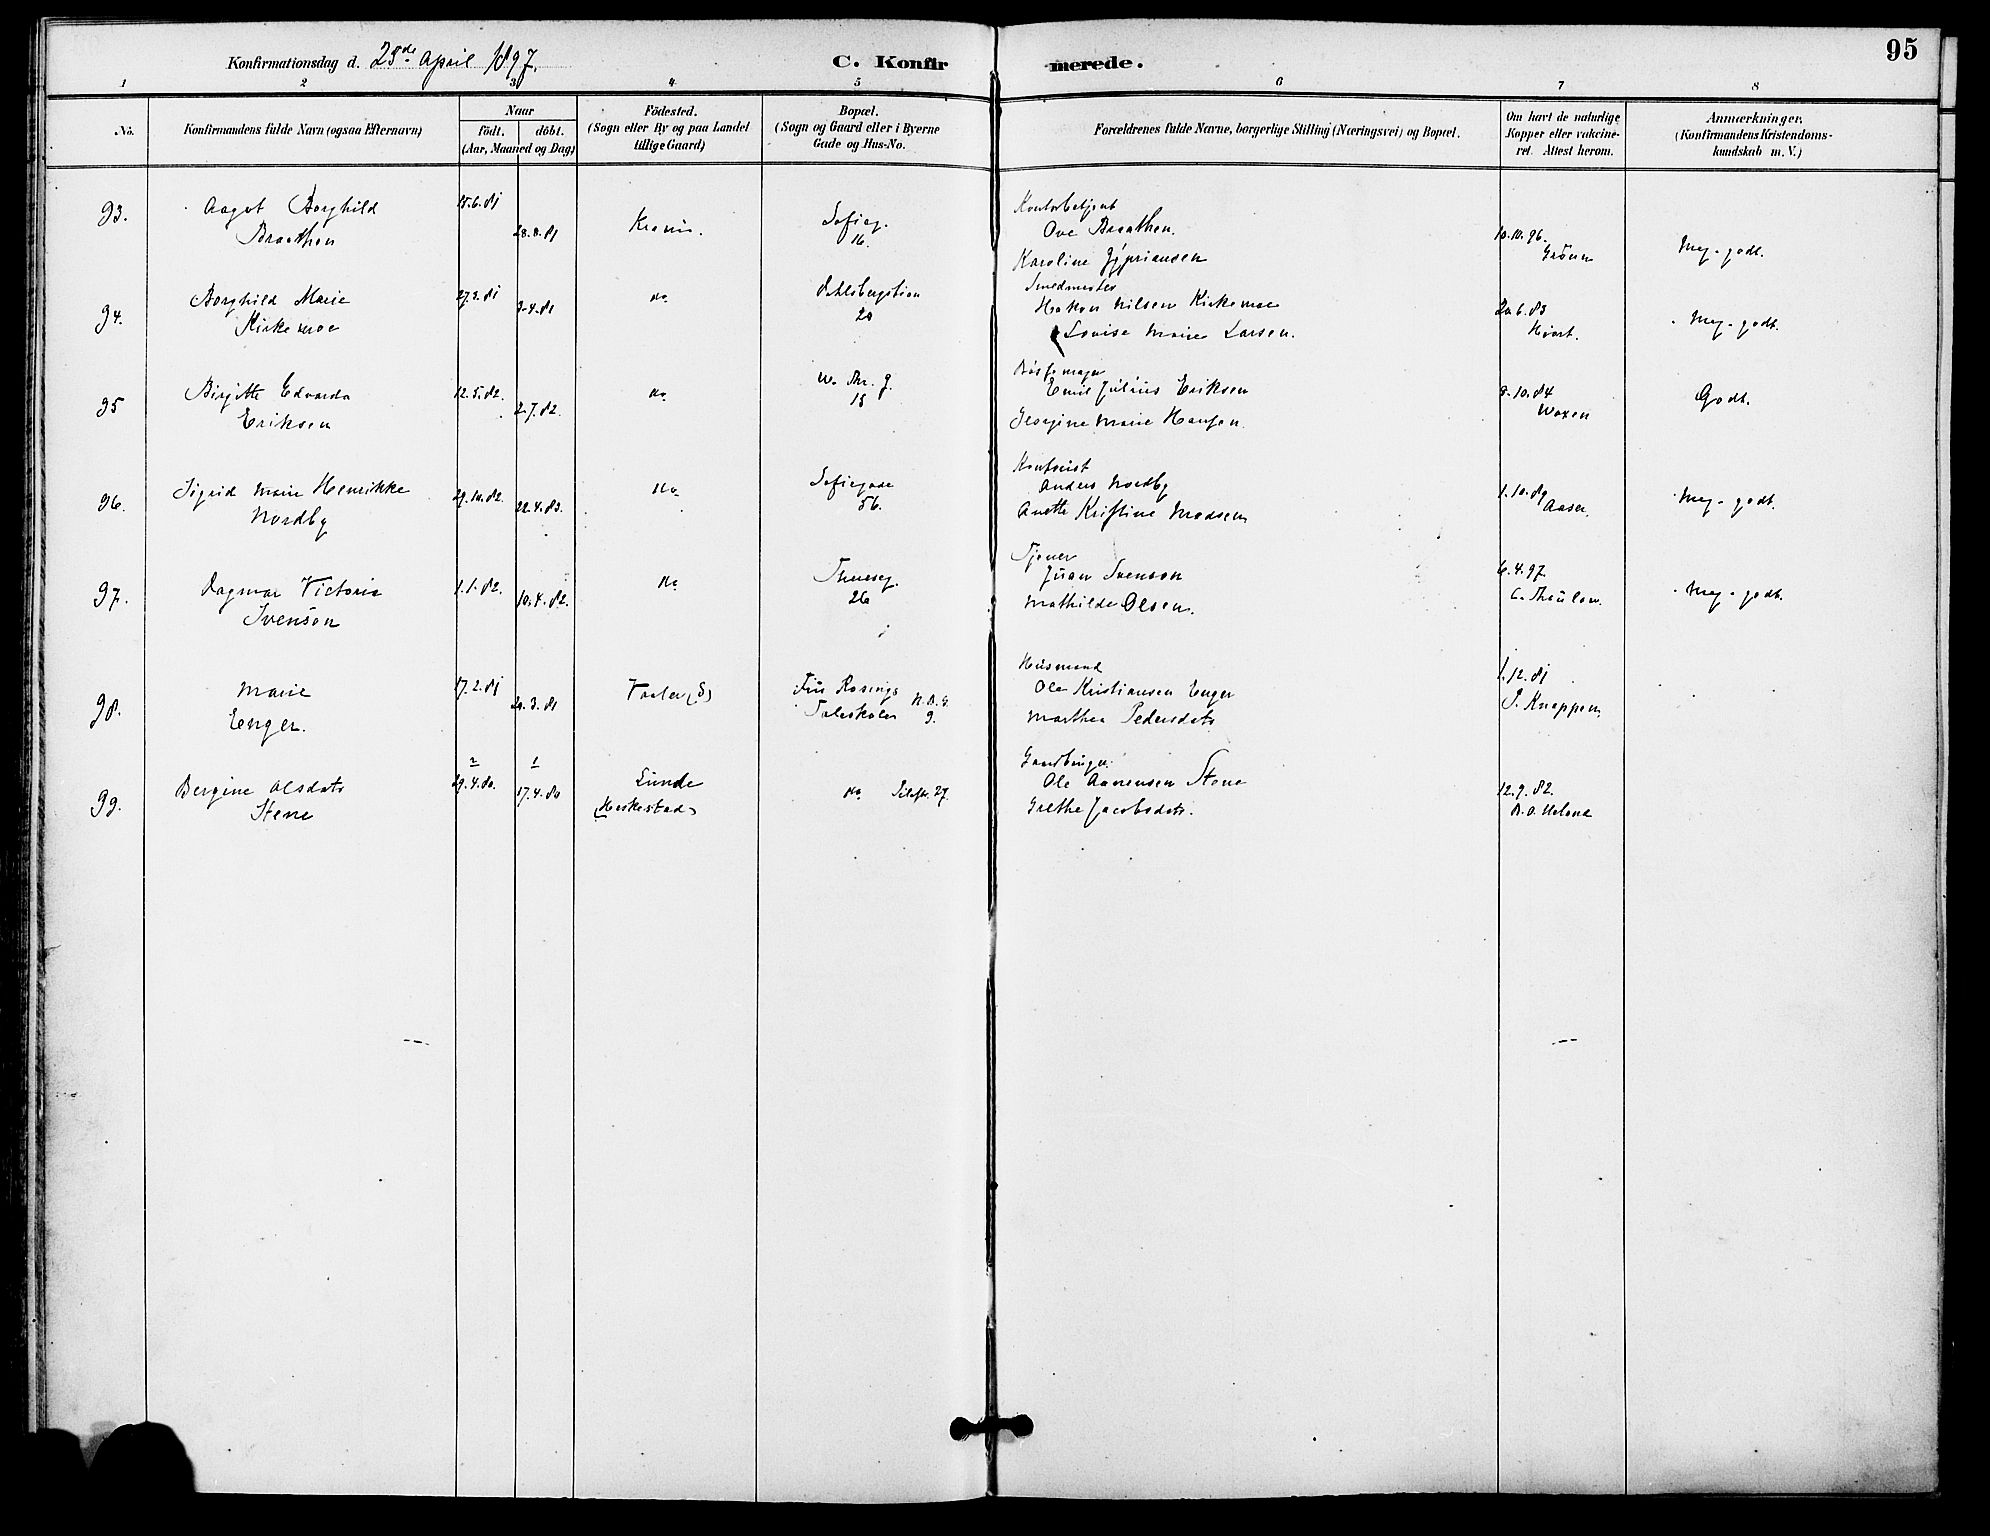 Konfirmationsdag d. 25de April 1897.
C. Konfirmerede.
95
1 2 3 4 5 6 7 8
No.
Konfirmandens fulde Navn (ogsaa Efternavn)
Naar
födt. döbt.
(Aar, Maaned og Dag)
Födested.
(Sogn eller By og paa Landet
tillige Gaard)
Bopæl.
(Sogn og Gaard eller i Byerne
Gade og Hus-No.
Forældrenes fulde Navne, borgerlige Stilling (Næringsvei) og Bopæl.
Om havt de naturlige
Kopper eller vakcine-
ret. Attest herom.
Anmærkninger.
(Konfirmandens Kristendoms-
kundskab m. V.)
93. Aagot Borghild
Braathen
15.6.81
28.8.81
Kra
Sofieg.
16.
Kontorbetjent
Ove Braathen.
Karoline Zypriansen
10.10.96.
Grönn
Meg. godt.
94. Borghild Marie
Kirkemoe
27.2.81
3.4.81
do
Dahlsbergstien
20
Smedmester
Hakon Nilsen Kirkemoe
Lovise Marie Larsen.
20.6.83
Hjort.
Meg. godt.
95 Birgitte Edvarda
Eriksen
12.5.82.
2.7.82.
do
W. Thr. g.
15
Bössemager
Emil Julius Eriksen
Georgine Marie Hansen.
9.10.84
Woxen
Godt.
96. Sigrid Marie Henrikke
Nordby
29.10.82.
22.4.83.
do
Sofiegade
56.
Kontorist
Anders Nordby
Anette Kristine Madsen
1.10.89
Aaser.
Meg. godt.
97. Dagmar Victoria
Svenson
1.1.82.
10.4.82.
do
Thuesg.
26
Tjener
Juan Svenson
Mathilde Olsen.
6.4.97.
C. Thaulow.
Meg. godt.
98. Marie
Enger.
17.2.81
20.3.81
Vaaler (S)
Frü Rosings
Taleskole N. B. G.
9.
Husmand
Ole Kristiansen Enger
Marthea Pedersdatr
1.12.81
P. Knappen
99. Bergine Olsdatr
Stene
2 1
29.4.80.
17.4.80
Lunde
(Heskestad)
do Pilestr. 27.
Gaardbruger.
Ole Aanensen Stene
Grethe Jacobsdatr.
12.9.82.
B. O. Heland